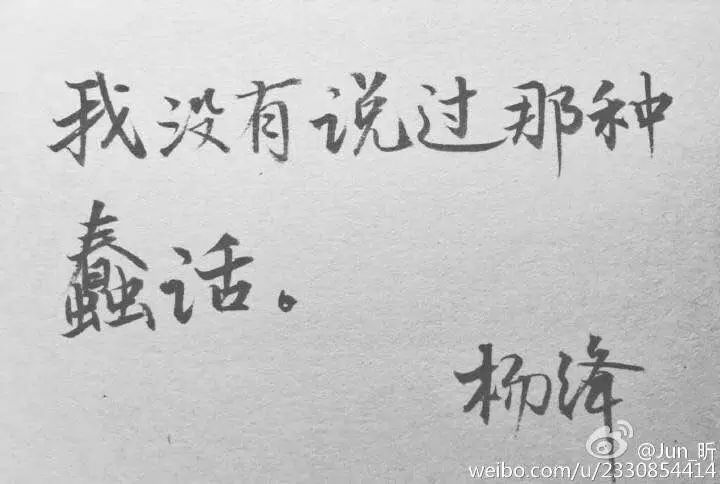 我没有说过那种
蠢话。
杨绛
@Jun_昕
weibo.com/u/2330854414